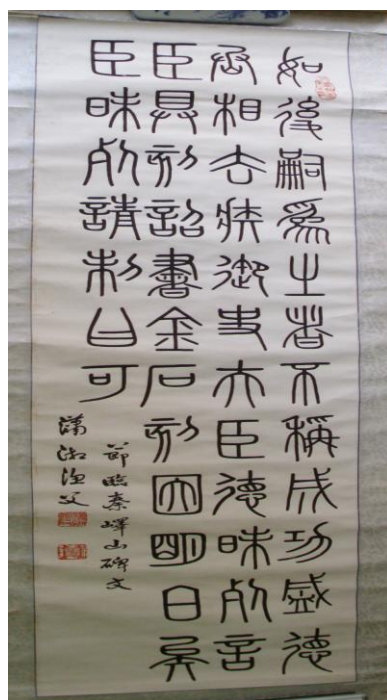 如後嗣爲之者不稱成功盛德
丞相去疾御史夫臣德昧死言
臣具刻詔書金石刻因明白矣
臣昧死請制曰可
節臨秦嶧山碑文
瀟湘漁父